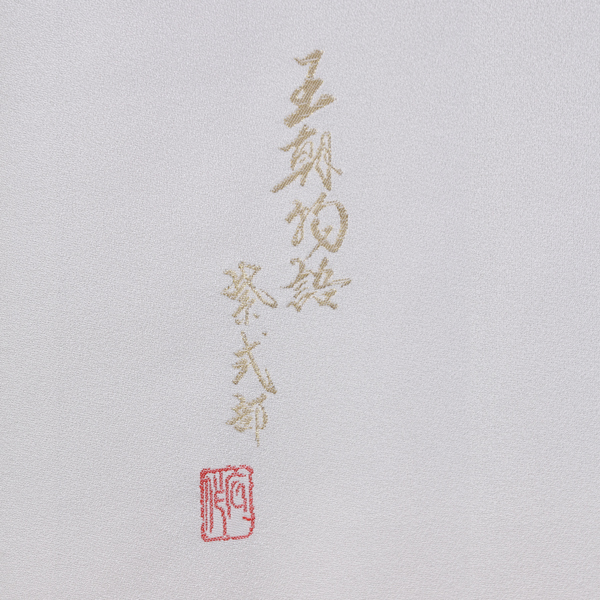 王朝物語
紫式部